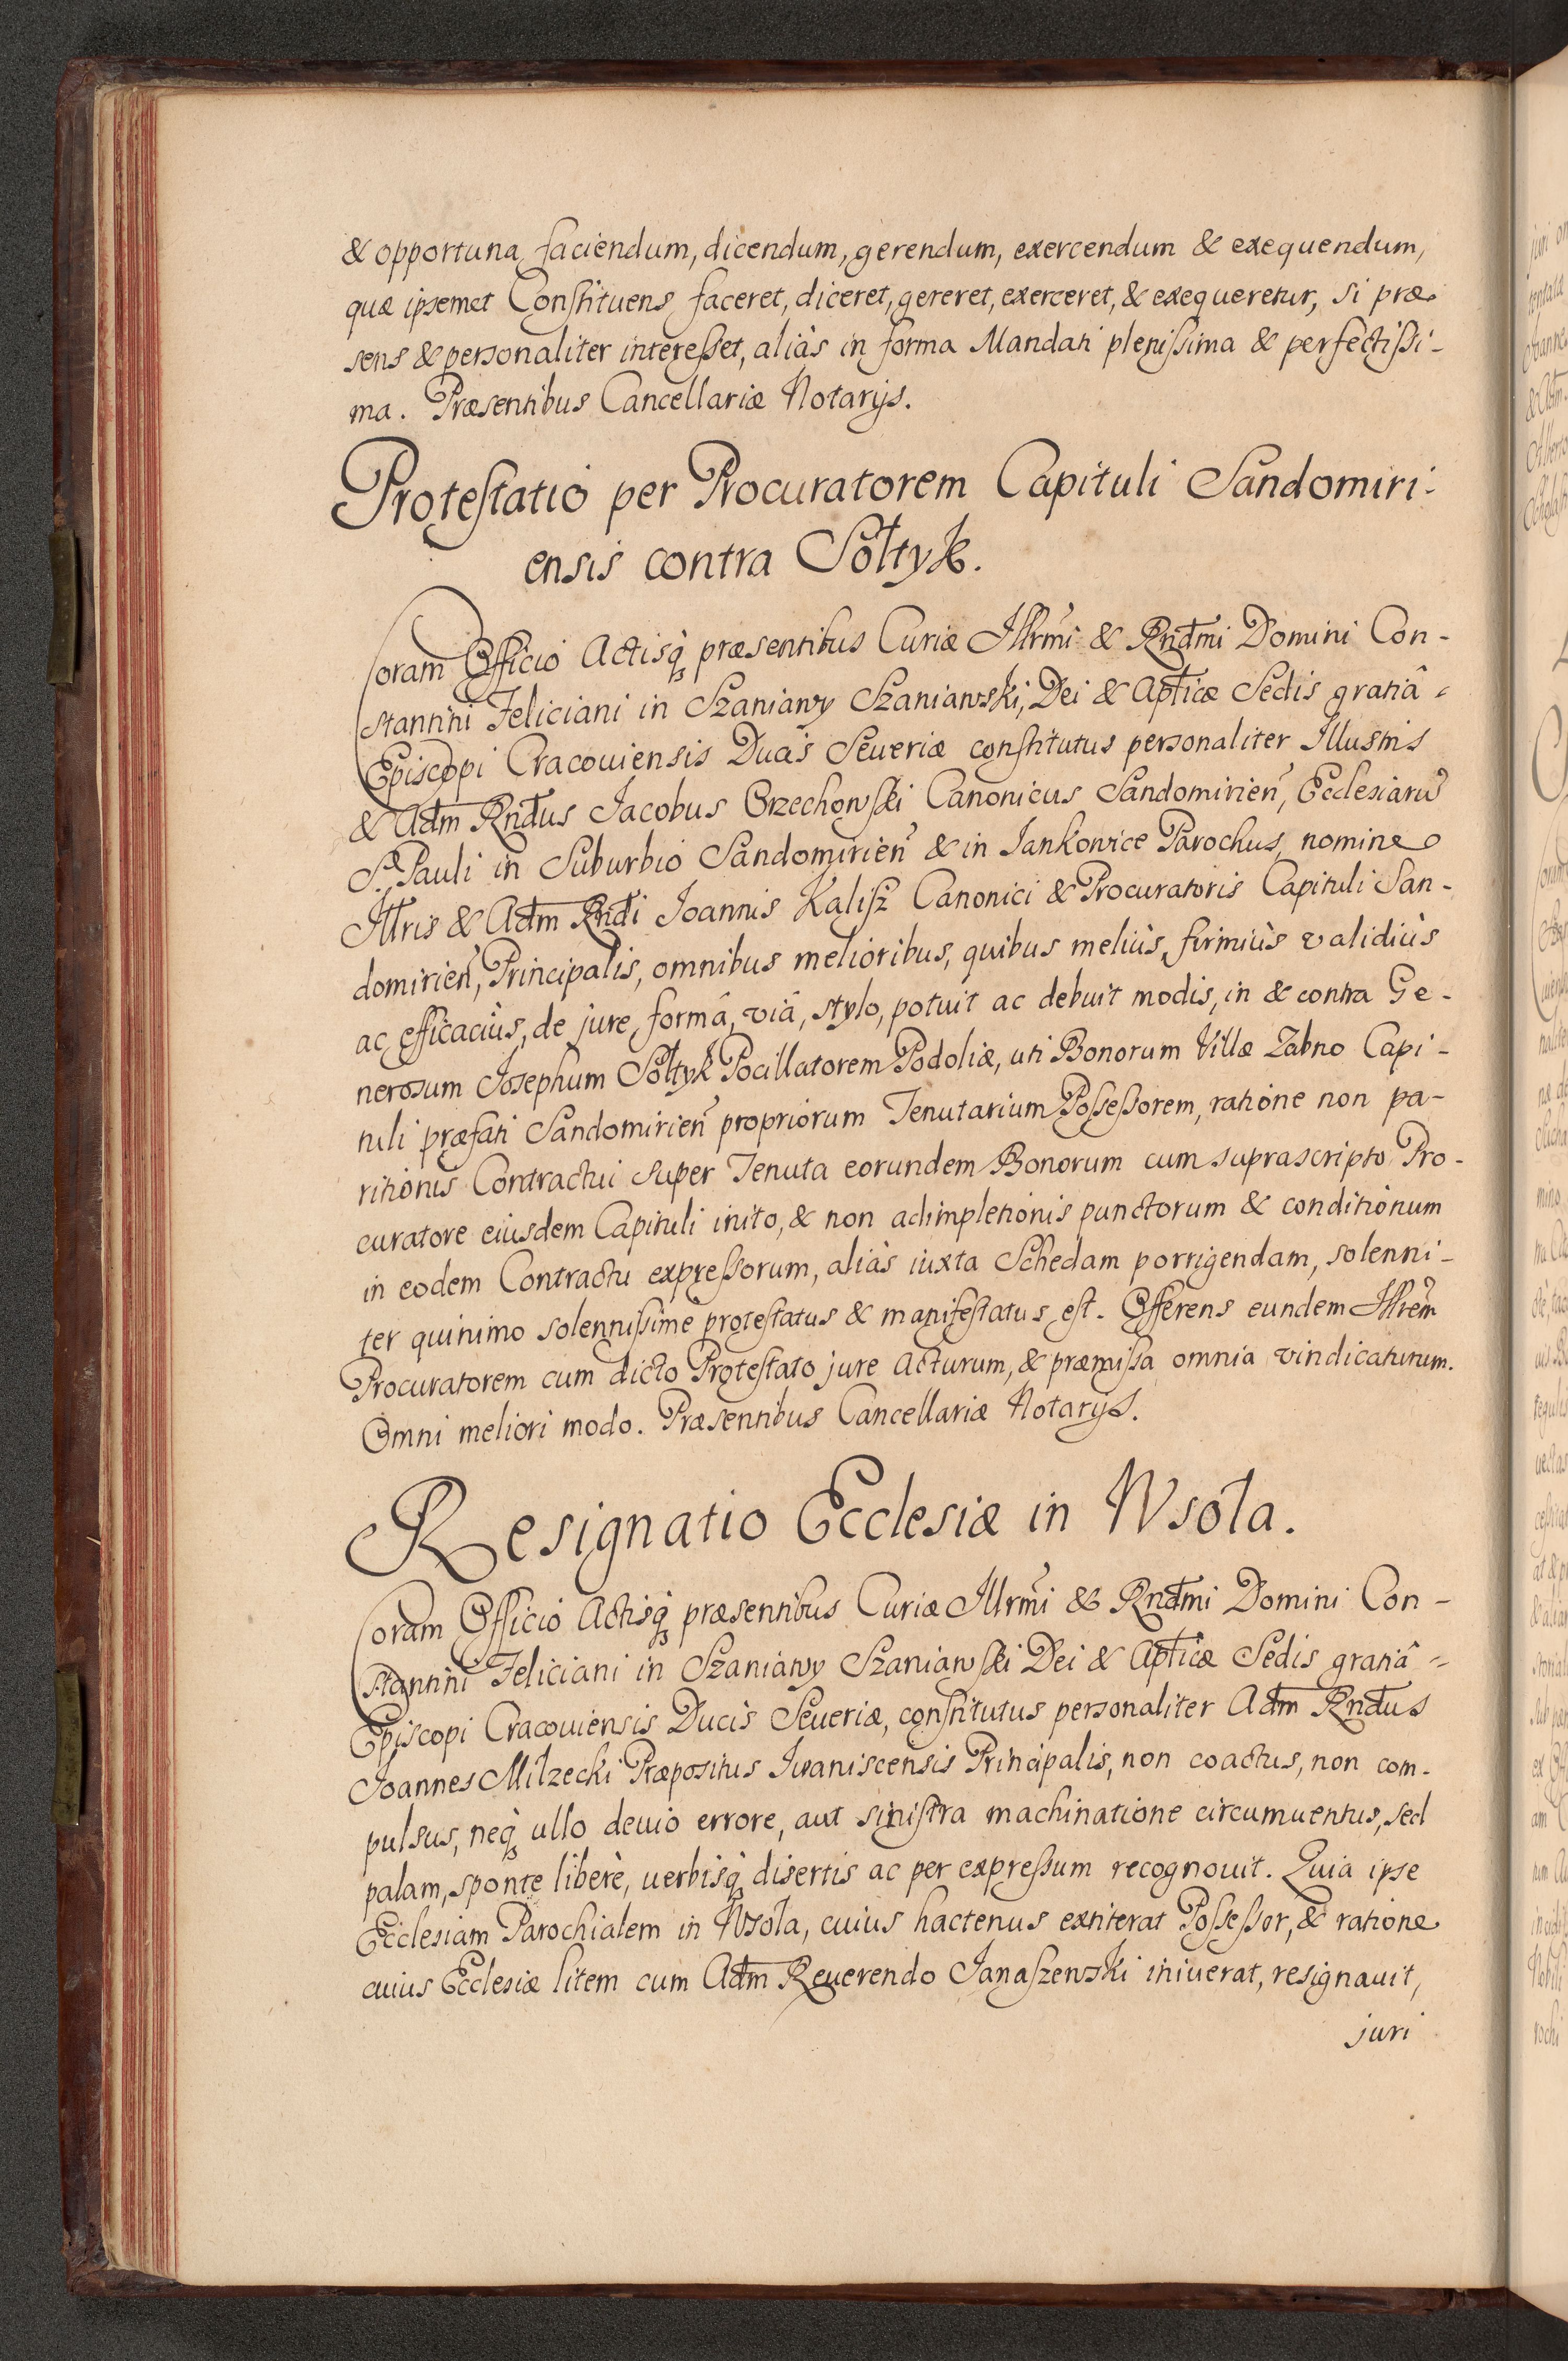 & opportuna faciendum, dicendum, gerendum, exercendum & exequendum,
quæ ipsemet Constituens faceret, diceret, gereret, exerceret, & exequeretur, si præ-
sens & personaliter interesset, aliàs in forma Mandati plenissima & perfectissi-
ma. Præsentibus Cancellariæ Notarijs.
Protestatio per Procuratorem Capituli Sandomiri-
ensis contra Sołtyk.
Coram Officio Actisq; præsentibus Curiæ Illrmi & Rndmi Domini Con-
stantini Feliciani in Szaniawy Szaniawski, Dei & Apticæ Sedis gratiâ
Episcopi Cracouiensis Ducis Seueriæ constitutus personaliter Illustris
& Adm Rndus Jacobus Orzechowski Canonicus Sandomirien, Ecclesiarũ
S. Pauli in Suburbio Sandomirien & in Jankowice Parochus, nomine
Illris & Adm Rndi Joannis Kalisz Canonici & Procuratoris Capituli San-
domirien, Principalis, omnibus melioribus, quibus meliùs, firmiùs validiùs
ac efficaciùs, de jure, formâ, viâ, stylo, potuit ac debuit modis, in & contra Ge-
nerosum Josephum Sołtyk Pocillatorem Podoliæ, uti Bonorum Villæ Zabno Capi-
tuli præfati Sandomirien propriorum Tenutarium Possessorem, ratione non pa-
ritionis Contractui super Tenuta eorundem Bonorum cum suprascripto Pro-
curatore eiusdem Capituli inito, & non adimpletionis punctorum & conditionum
in eodem Contractu expressorum, aliàs iuxta Schedam porrigendam, solenni-
ter quinimo solennissimè protestatus & manifestatus est. Offerens eundem Illrem
Procuratorem cum dicto Protestato jure Acturum, & præmissa omnia vindicaturum.
Omni meliori modo. Præsentibus Cancellariæ Notarijs.
Resignatio Ecclesiæ in Wsola.
Coram Officio Actisq; præsentibus Curiæ Illrmi & Rndmi Domini Con-
stantini Feliciani in Szaniawy Szaniawski Dei & Apticæ Sedis gratiâ
Episcopi Cracouiensis Ducis Seueriæ, constitutus personaliter Adm Rndus
Joannes Milzecki Præpositus Iwaniscensis Principalis, non coactus, non com-
pulsus, neq; ullo deuio errore, aut sinistra machinatione circumuentus, sed
palam, sponte liberè, uerbisq; disertis ac per expressum recognouit. Quia ipse
Ecclesiam Parochialem in Wsola, cuius hactenus extiterat Possessor, & ratione
cuius Ecclesiæ litem cum Adm Reuerendo Janaszewski iniuerat, resignauit,
juri